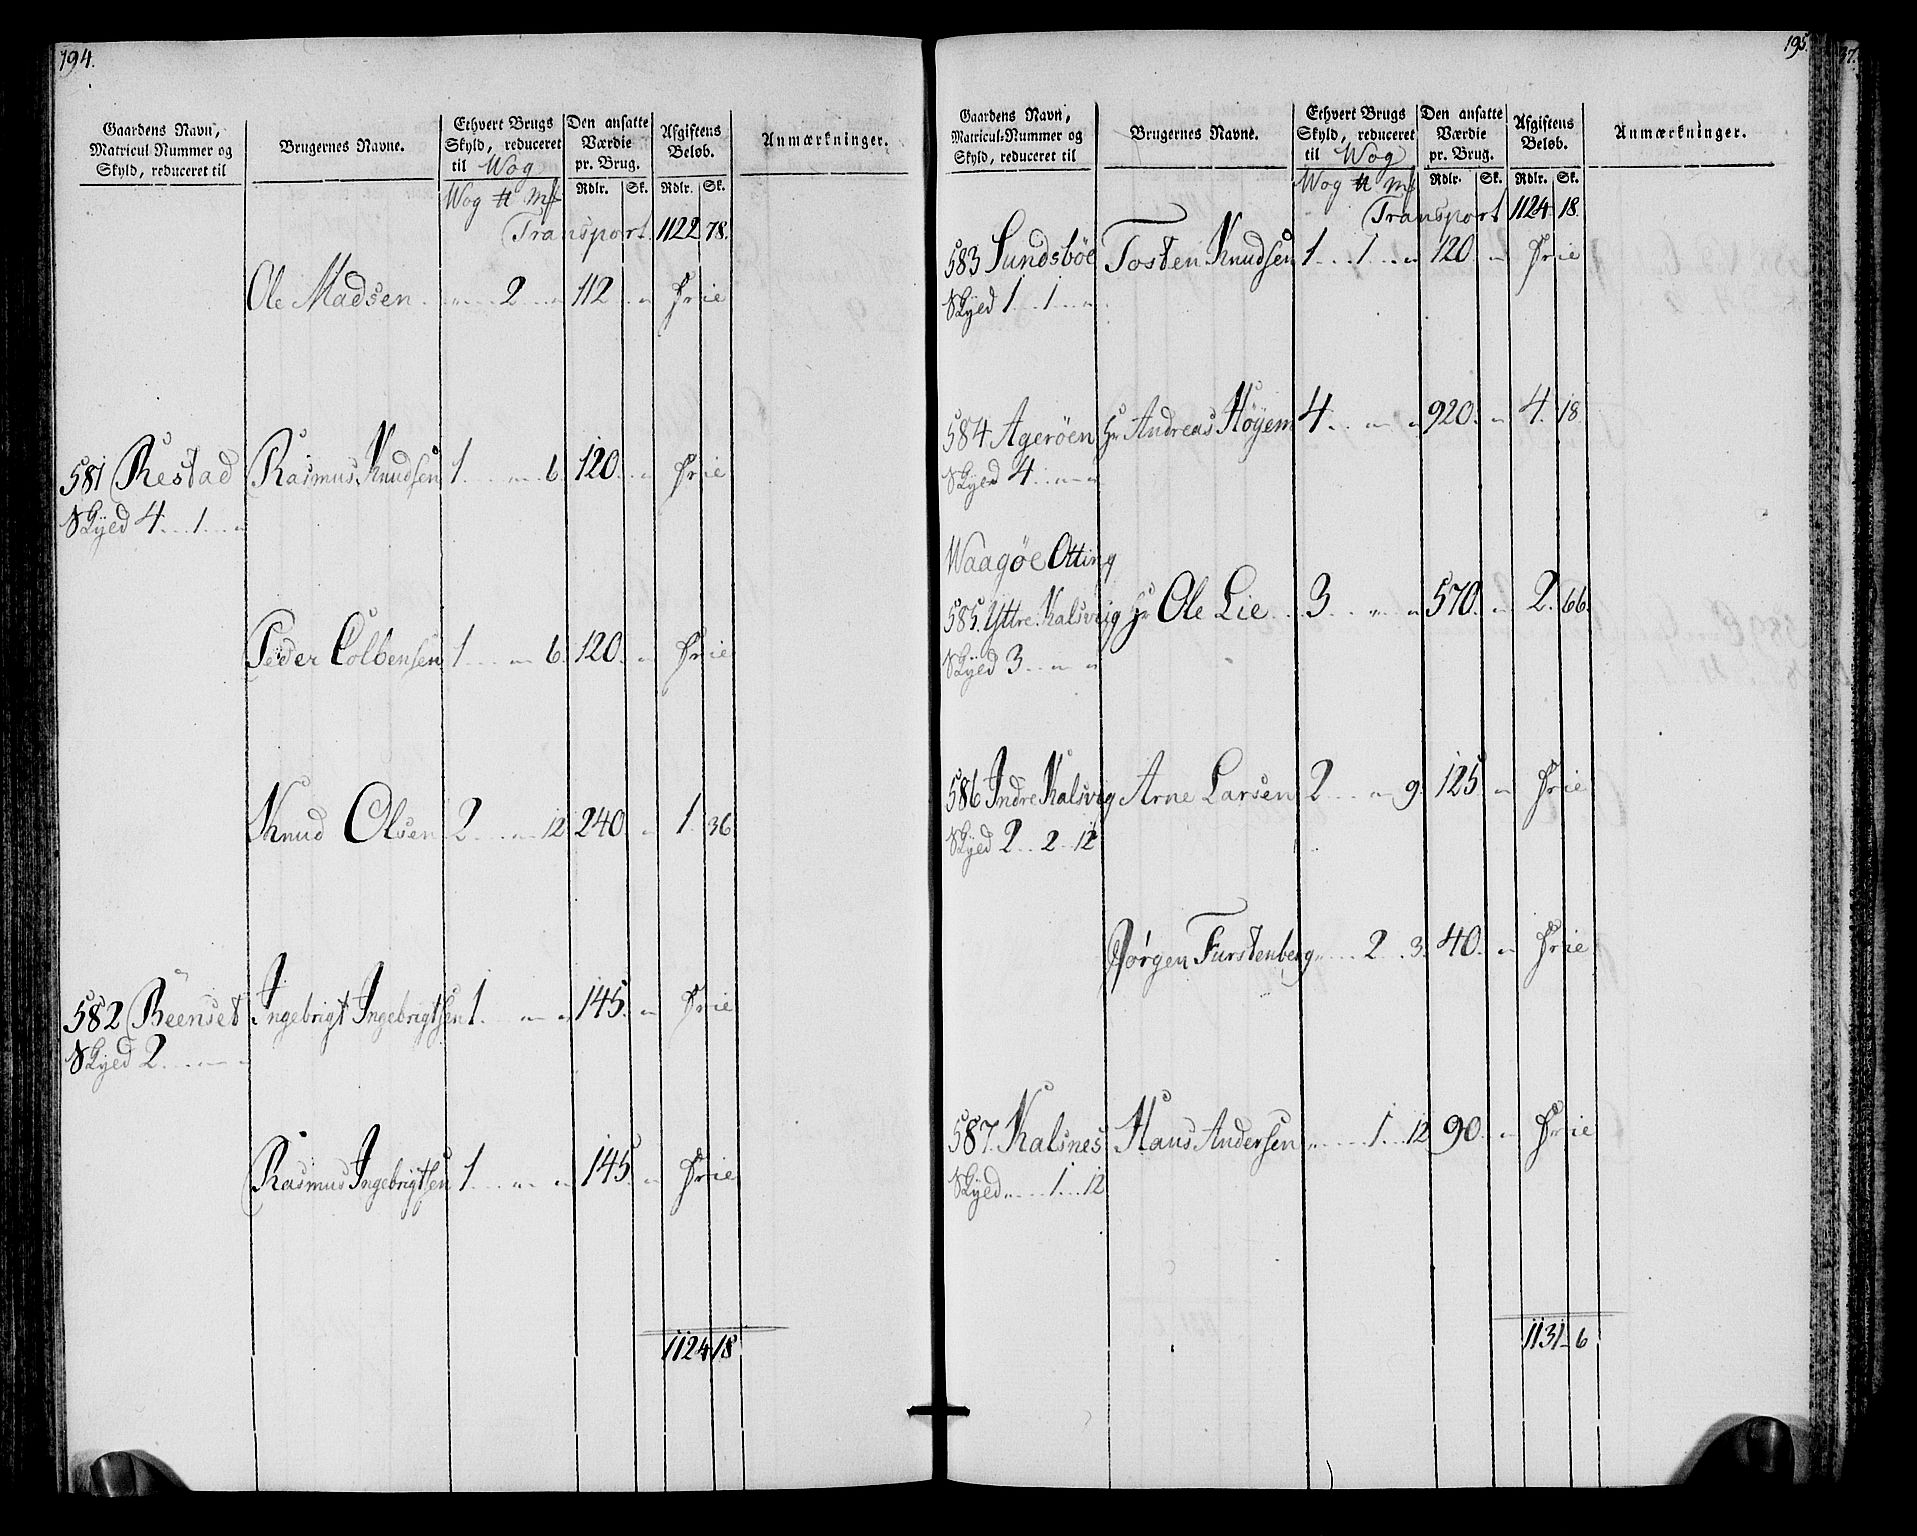 194.
Gaardens Navn, Matricul-Nummer og Skyld, reduceret til
Brugernes Navne.
Ethvert Brugs Skyld, reduceret til Wog
Den ansatte Værdie pr. Brug.
Afgiftens Beløb.
Anmærkninger.
Wog ℔ mſ Rdlr. Sk. Rdlr. Sk.
Transport. 1122 78.
Ole Madsen . „ 2 „ 112 „ Frie
581 Restad Rasmus Knudsen 1 „ 6. 120. „ Frie
Skyed 4 . . 1 . . „
Peder Colbensen 1 „ 6. 120. „ Frie
Knud Olsen 2 „ 12 240 „ 1. 36
582 Reenset Ingebrigt Ingebrigtsen 1. „ „ 145. „ Frie
Skyed 2 „ „
Rasmus Ingebrigtsen 1 „ „ 145. „ Frie
1124 18
195.
Gaardens Navn, Matricul-Nummer og Skyld, reduceret til
Brugernes Navne.
Ethvert Brugs Skyld, reduceret til Wog
Den ansatte Værdie pr. Brug.
Afgiftens Beløb.
Anmærkninger.
Wog ℔ mſ Rdlr. Sk. Rdlr. Sk.
Transport 1124 18.
583 Sundsböe Tosten Knudsen 1 . . 1 . . „ 120. „ Frie
Skyed 1 . . 1 . . „
584 Ageröen Hr Andreas Höyem 4 . . „ „ 920. „ 4. 18.
Skyed 4 . . „ „
Waagöe Otting
585. Yttre Kalsvig Hr Ole Lie . . 3 . . „ „ 570. „ 2. 66.
Skyed 3 . . „ „
586 Indre Kalsvig Arne Larsen 2 . . „ 9. 125. „ Frie
Skyed 2 . . 2 . . 12
Jörgen Furstenberg „ . . 2 . . 3. 40. „ Frie
587. Kalsnes Hans Andersen „ . . 1 . . 12 90. „ Frie
Skyed „ . . 1 . . 12
1131 6